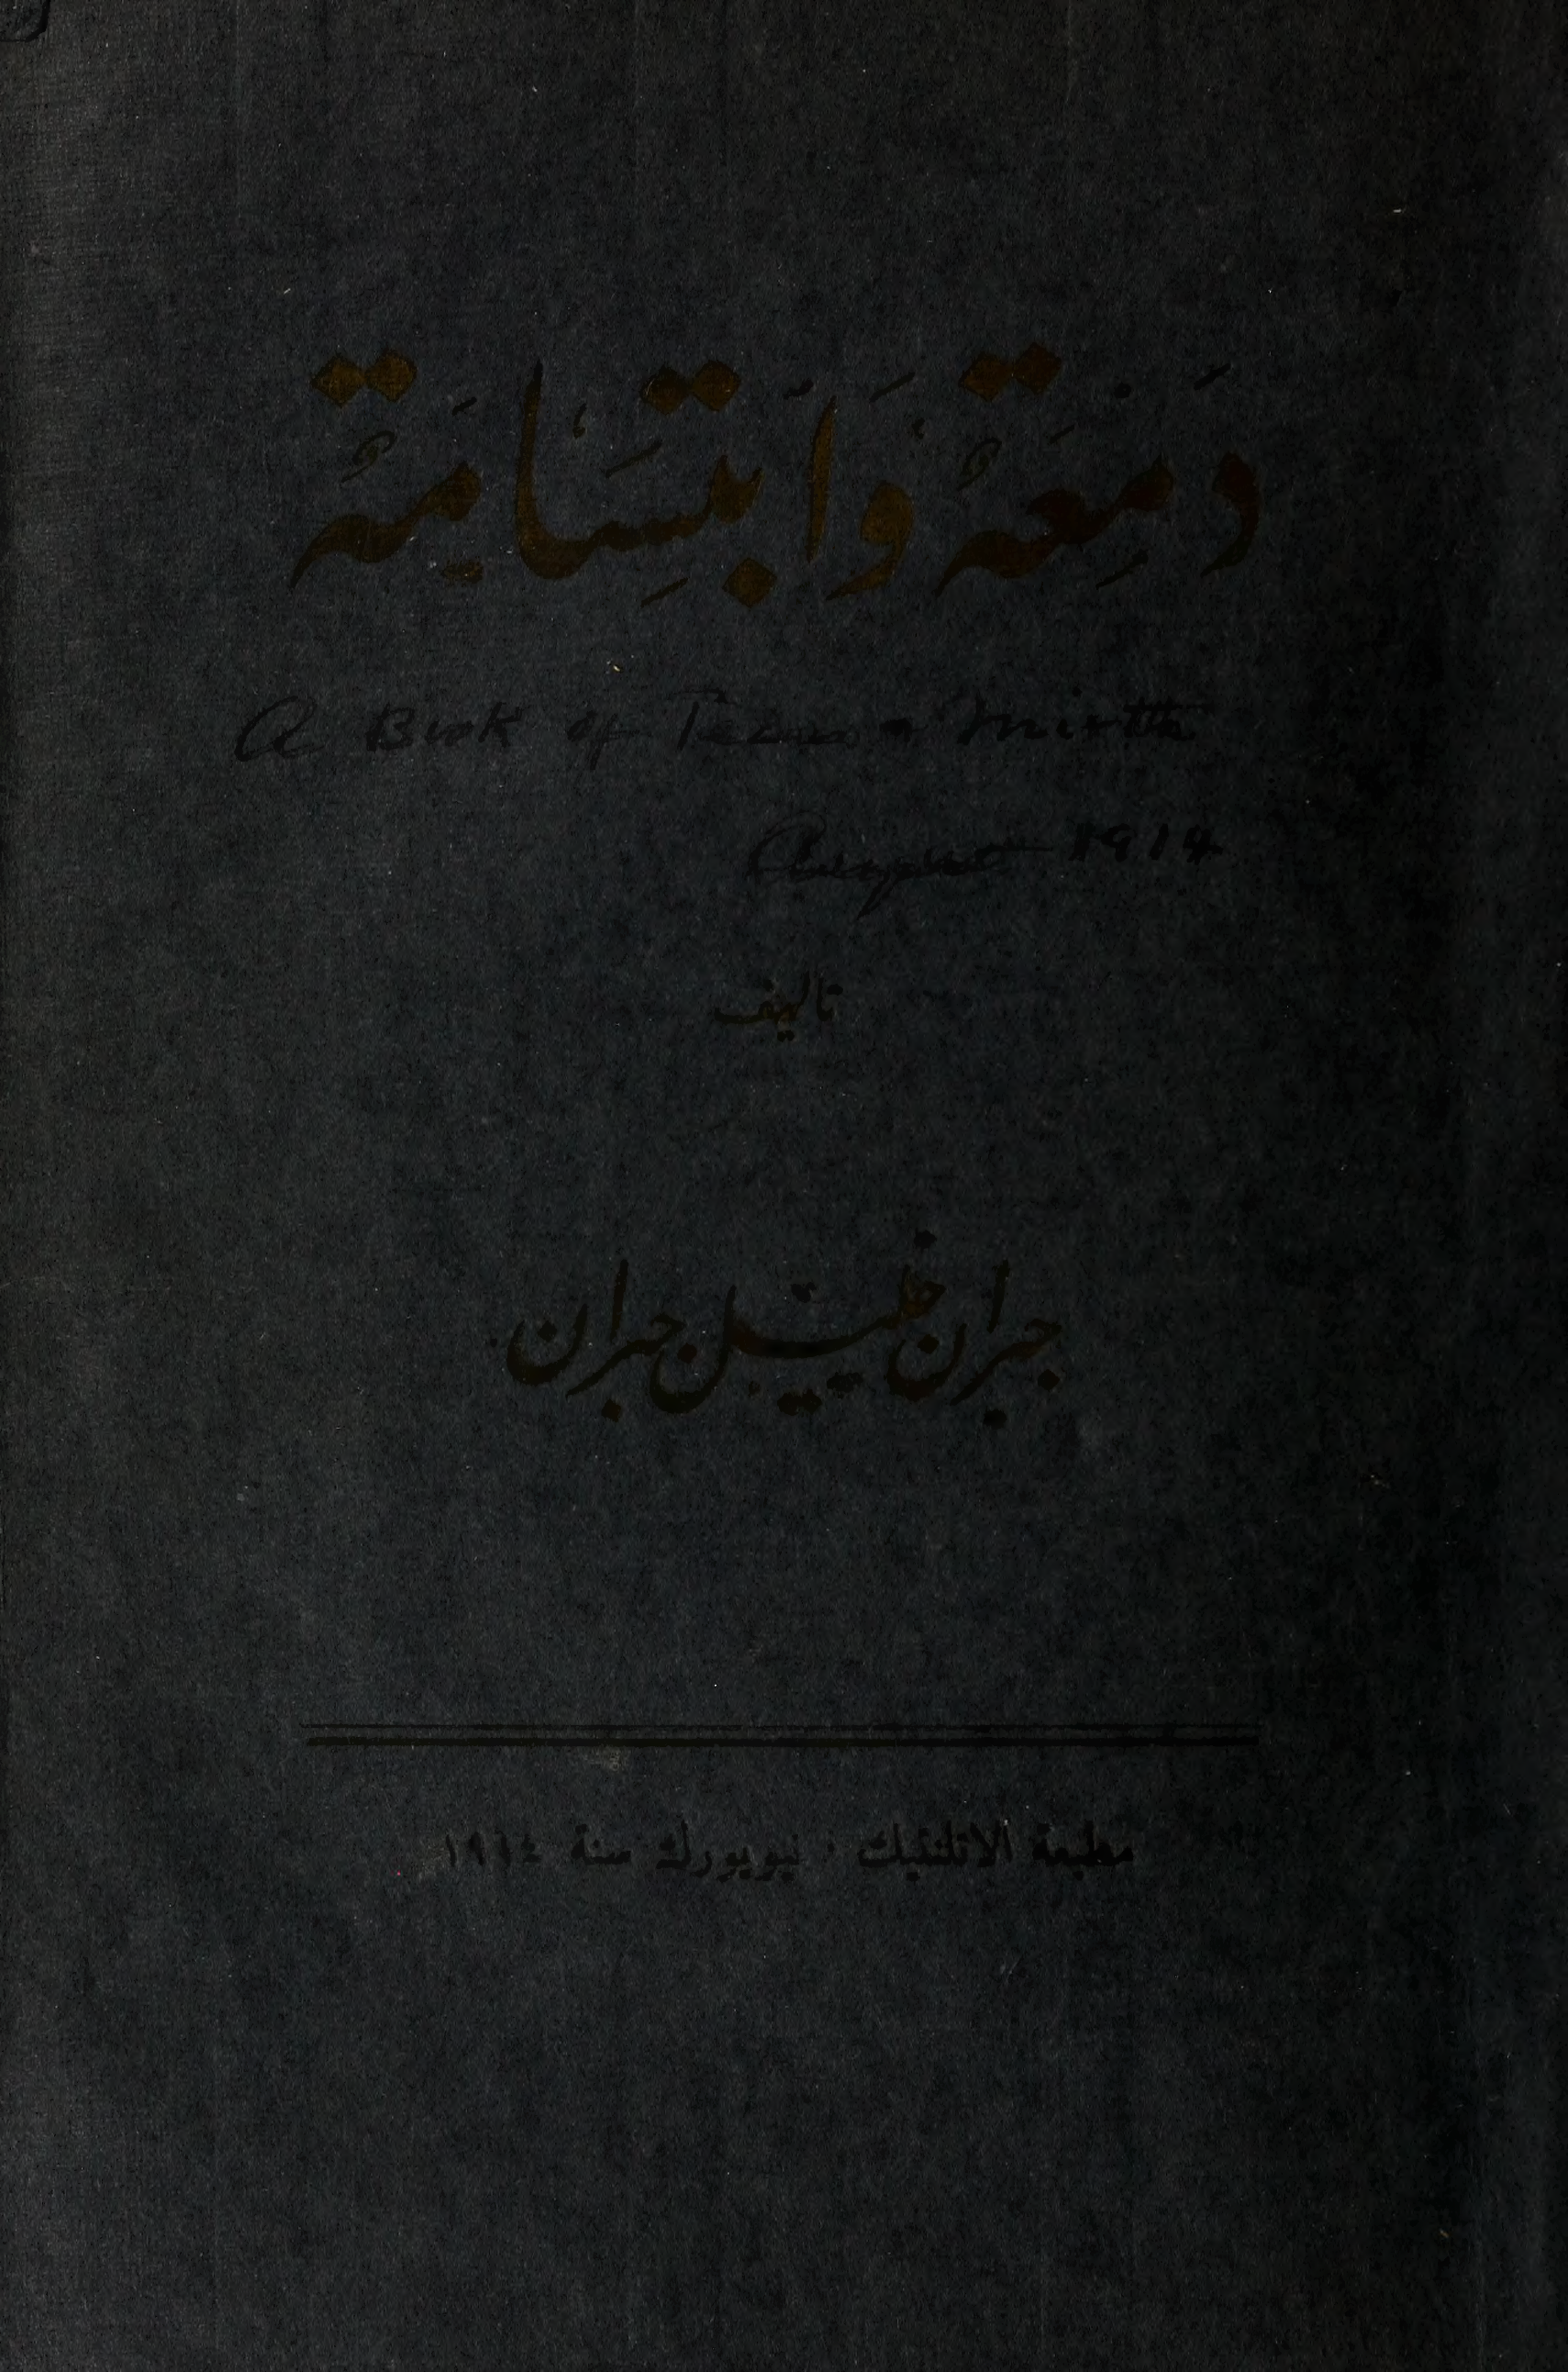 دَمْعَةٌ وَابْتِسَامَةٌ
A Book of Tears & Mirth
August 1914
تاليف
جبران خليل جبران
مطبعة الاتلنتيك · نيويورك سنة ١٩١٤